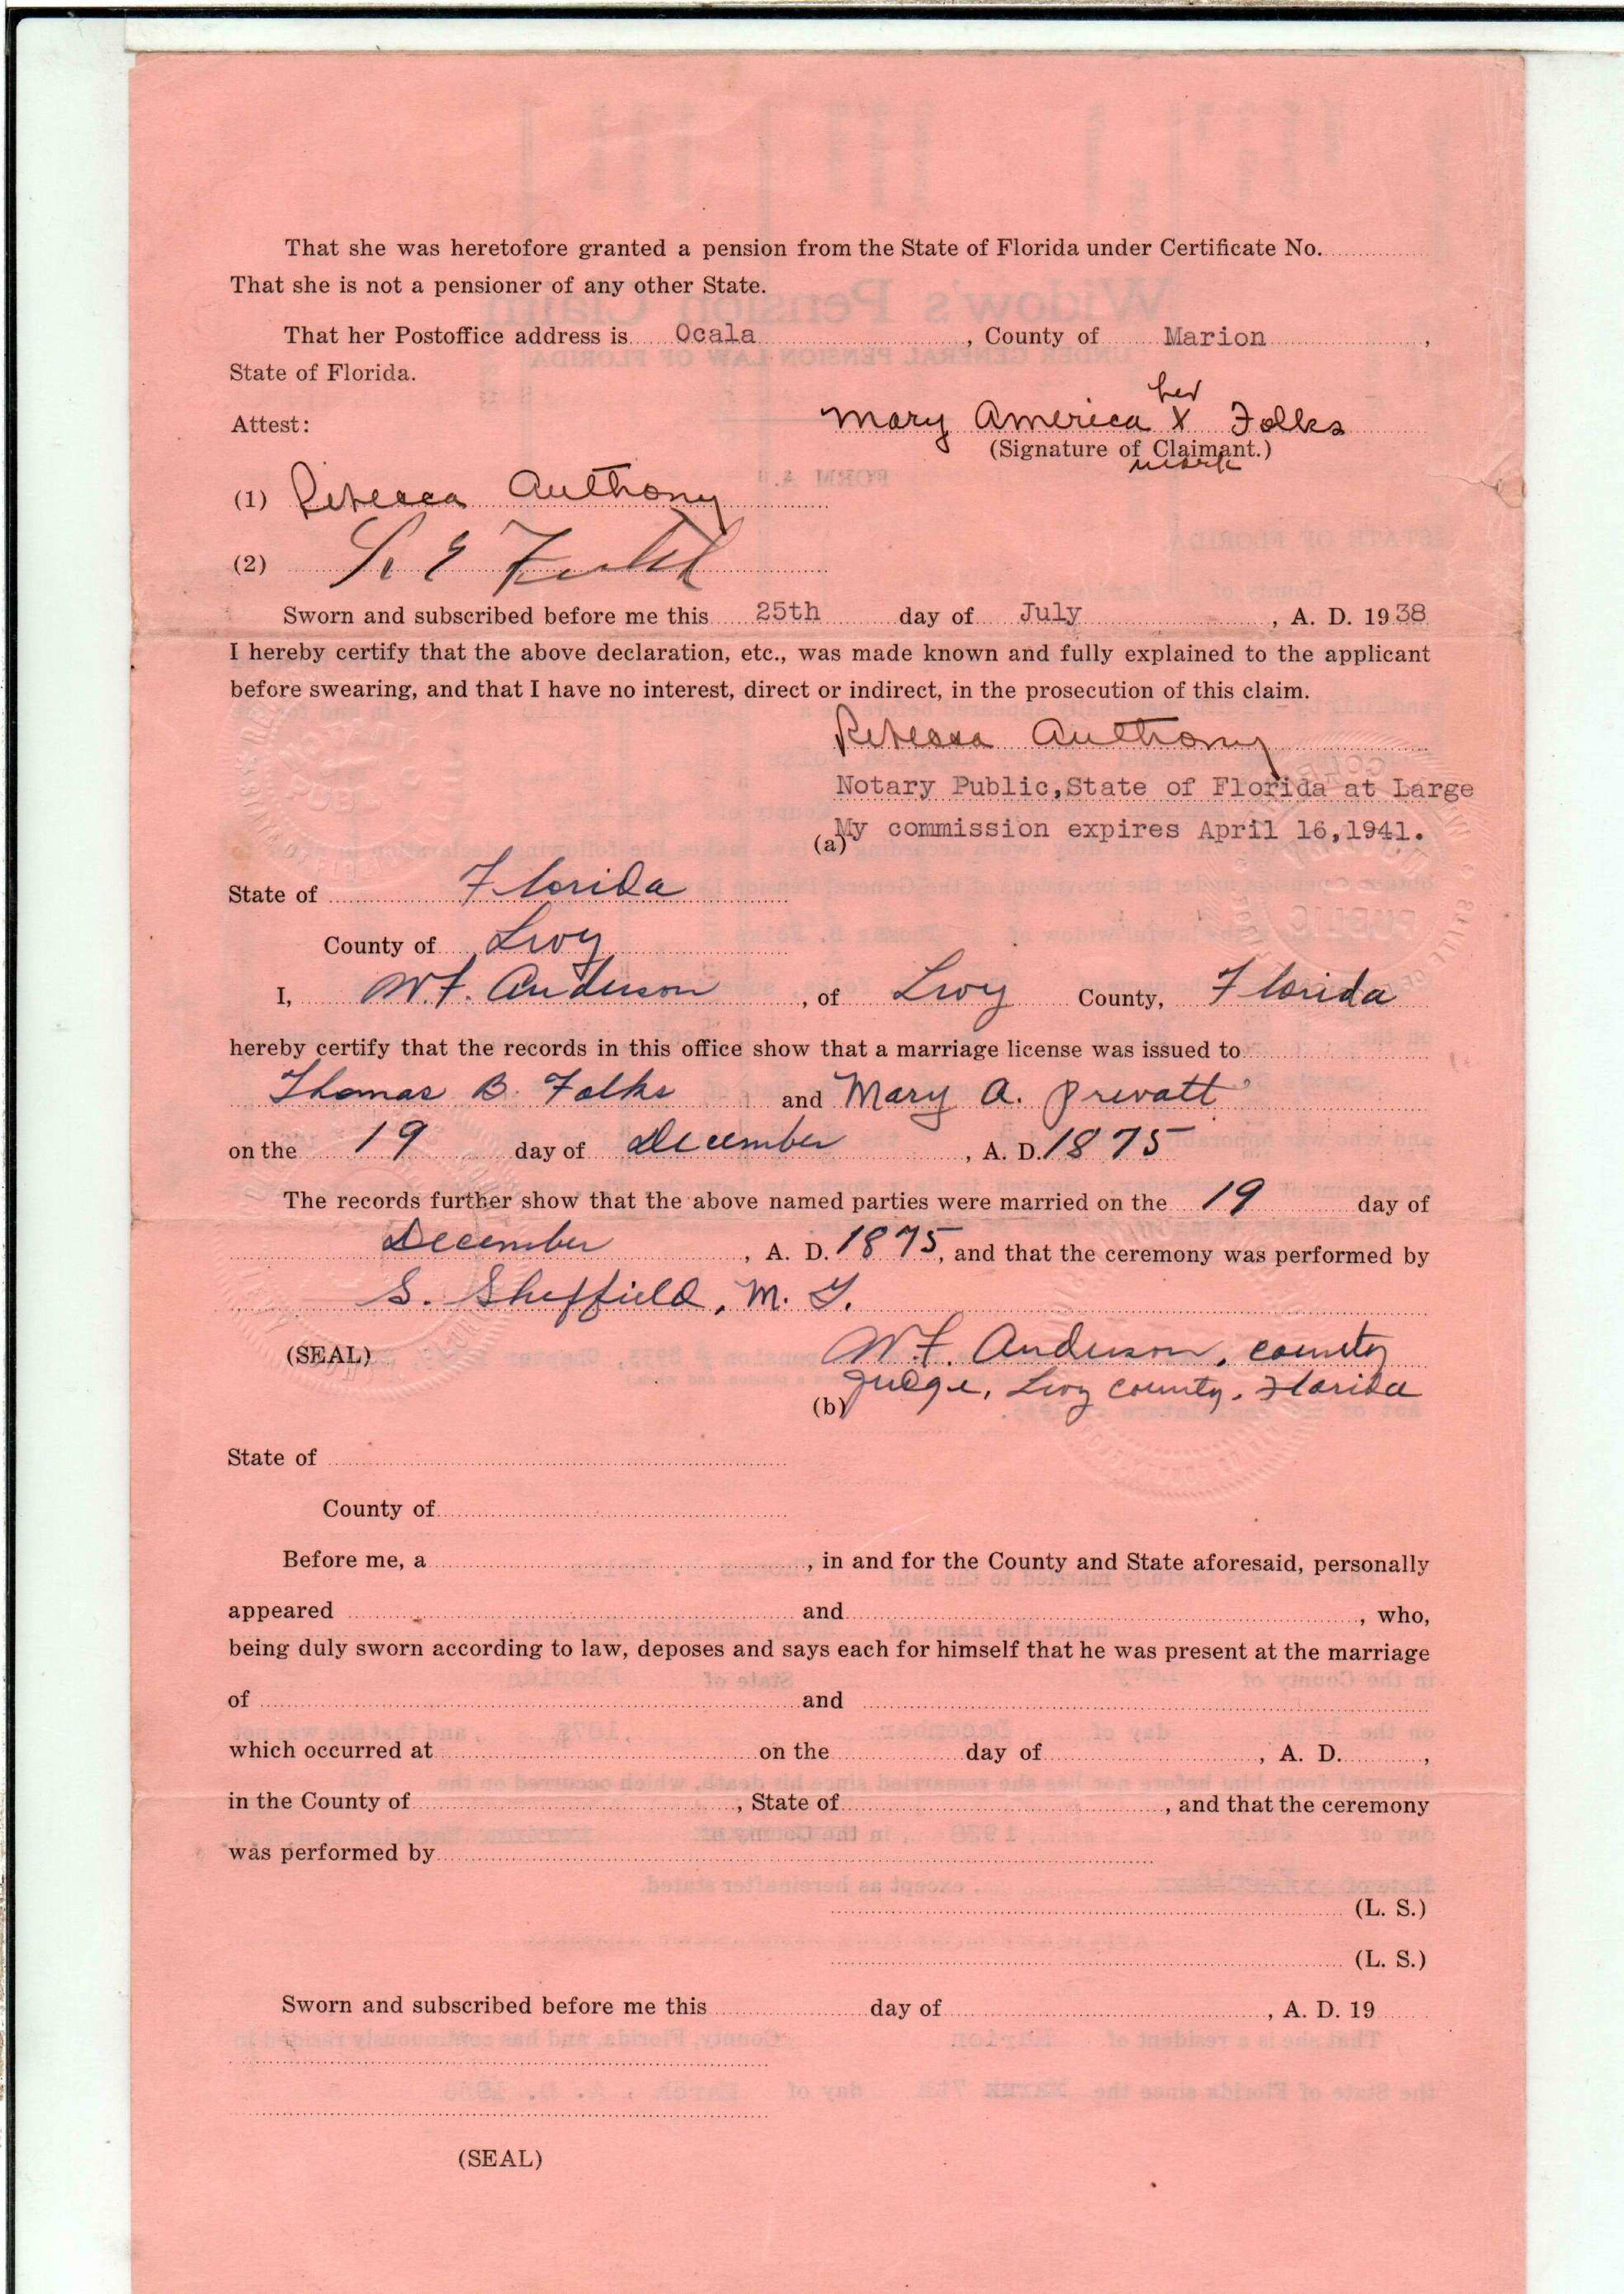 That she was heretofore granted a pension from the State of Florida under Certificate No.
That she is not a pensioner of any other State.
That her Postoffice address is Ocala , County of Marion ,
State of Florida.
her
Attest: Mary America X Folks
(Signature of Claimant.)
mark
(1) Rebecca Anthony
(2) S. E.
Sworn and subscribed before me this 25th day of July , A. D. 1938
I hereby certify that the above declaration, etc., was made known and fully explained to the applicant
before swearing, and that I have no interest, direct or indirect, in the prosecution of this claim.
Rebecca Anthony
Notary Public,State of Florida at Large
My commission expires April 16,1941.
(a)
State of Florida
County of Levy
I, W.F. Anderson , of Levy County, Florida
hereby certify that the records in this office show that a marriage license was issued to
Thomas B. Folks and Mary A. Prevatt
on the 19 day of December , A. D. 1875
The records further show that the above named parties were married on the 19 day of
December , A. D. 1875, and that the ceremony was performed by
S. Sheffield, M. G.
(SEAL) W.F. Anderson, county
Judge, Levy county, Florida
(b)
State of
County of
Before me, a , in and for the County and State aforesaid, personally
appeared and , who,
being duly sworn according to law, deposes and says each for himself that he was present at the marriage
of and
which occurred at on the day of , A. D. ,
in the County of , State of , and that the ceremony
was performed by
(L. S.)
(L. S.)
Sworn and subscribed before me this day of , A. D. 19
(SEAL)